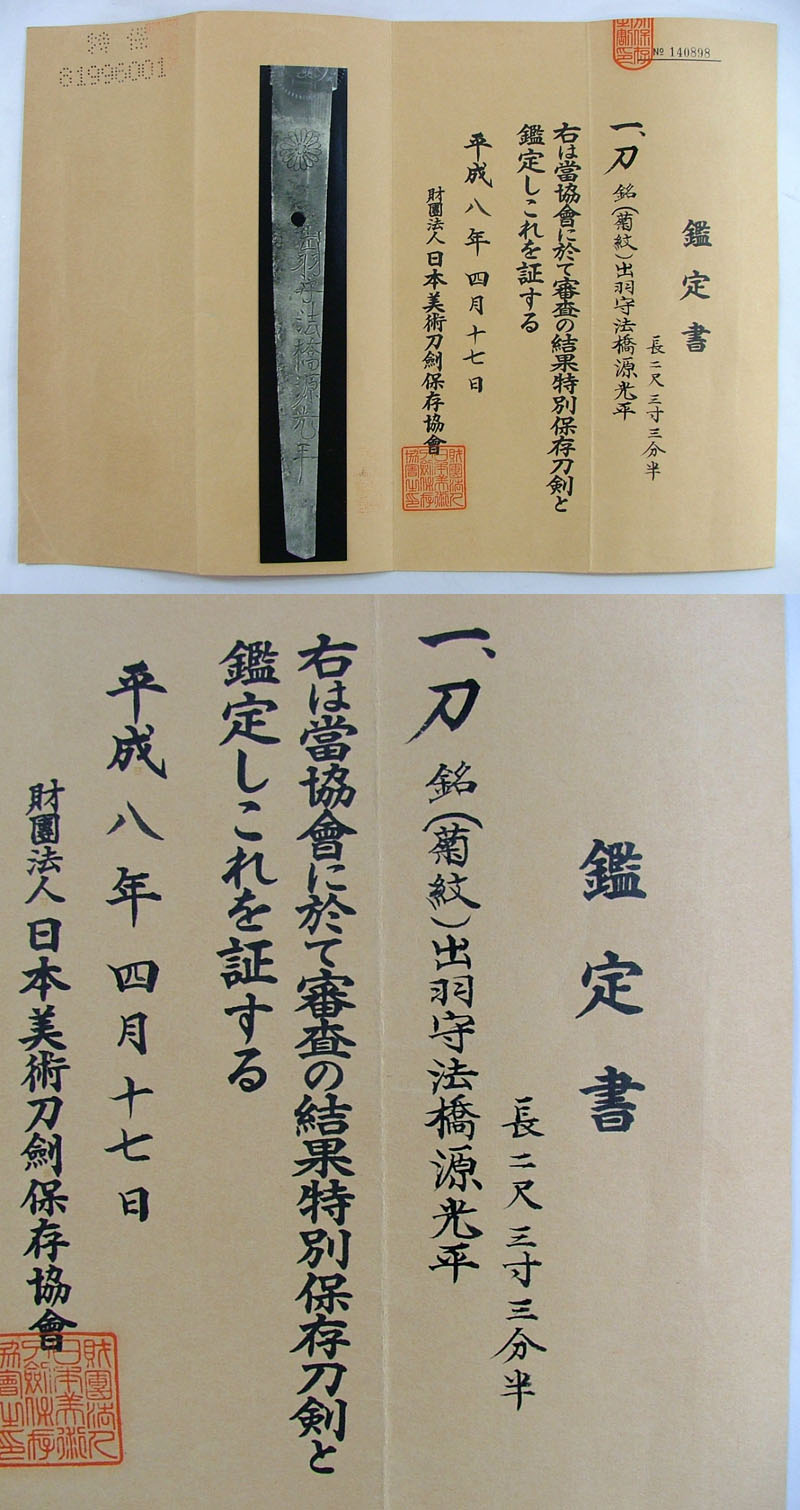 № 140898
鑑定書
長二尺三寸三分半
一、刀 銘(菊紋)出羽守法橋源光平
右は當協會に於て審査の結果特別保存刀剣と
鑑定しこれを証する
平成八年四月十七日
財團法人日本美術刀劍保存協會
財團法人
日本美術
刀劍保存
協會之印
出羽守法橋源光平
特保
61996001
鑑定書
長二尺三寸三分半
一、刀 銘(菊紋)出羽守法橋源光平
右は當協會に於て審査の結果特別保存刀剣と
鑑定しこれを証する
平成八年四月十七日
財團法人日本美術刀劍保存協會
財團法人
日本美術
刀劍保存
協會之印